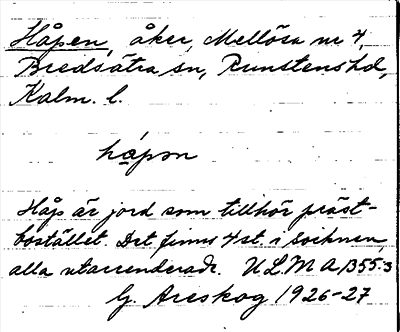 Håpen, åker, Mellösa nr 4,
Bredsätra sn, Runstens hd,
Kalm. l.
hápən
Håp är jord som tillhör präst-
bostället. Det finns 4 st. i socknen,
alla utarrenderade. ULMA 1355:3
G. Areskog 1926-27